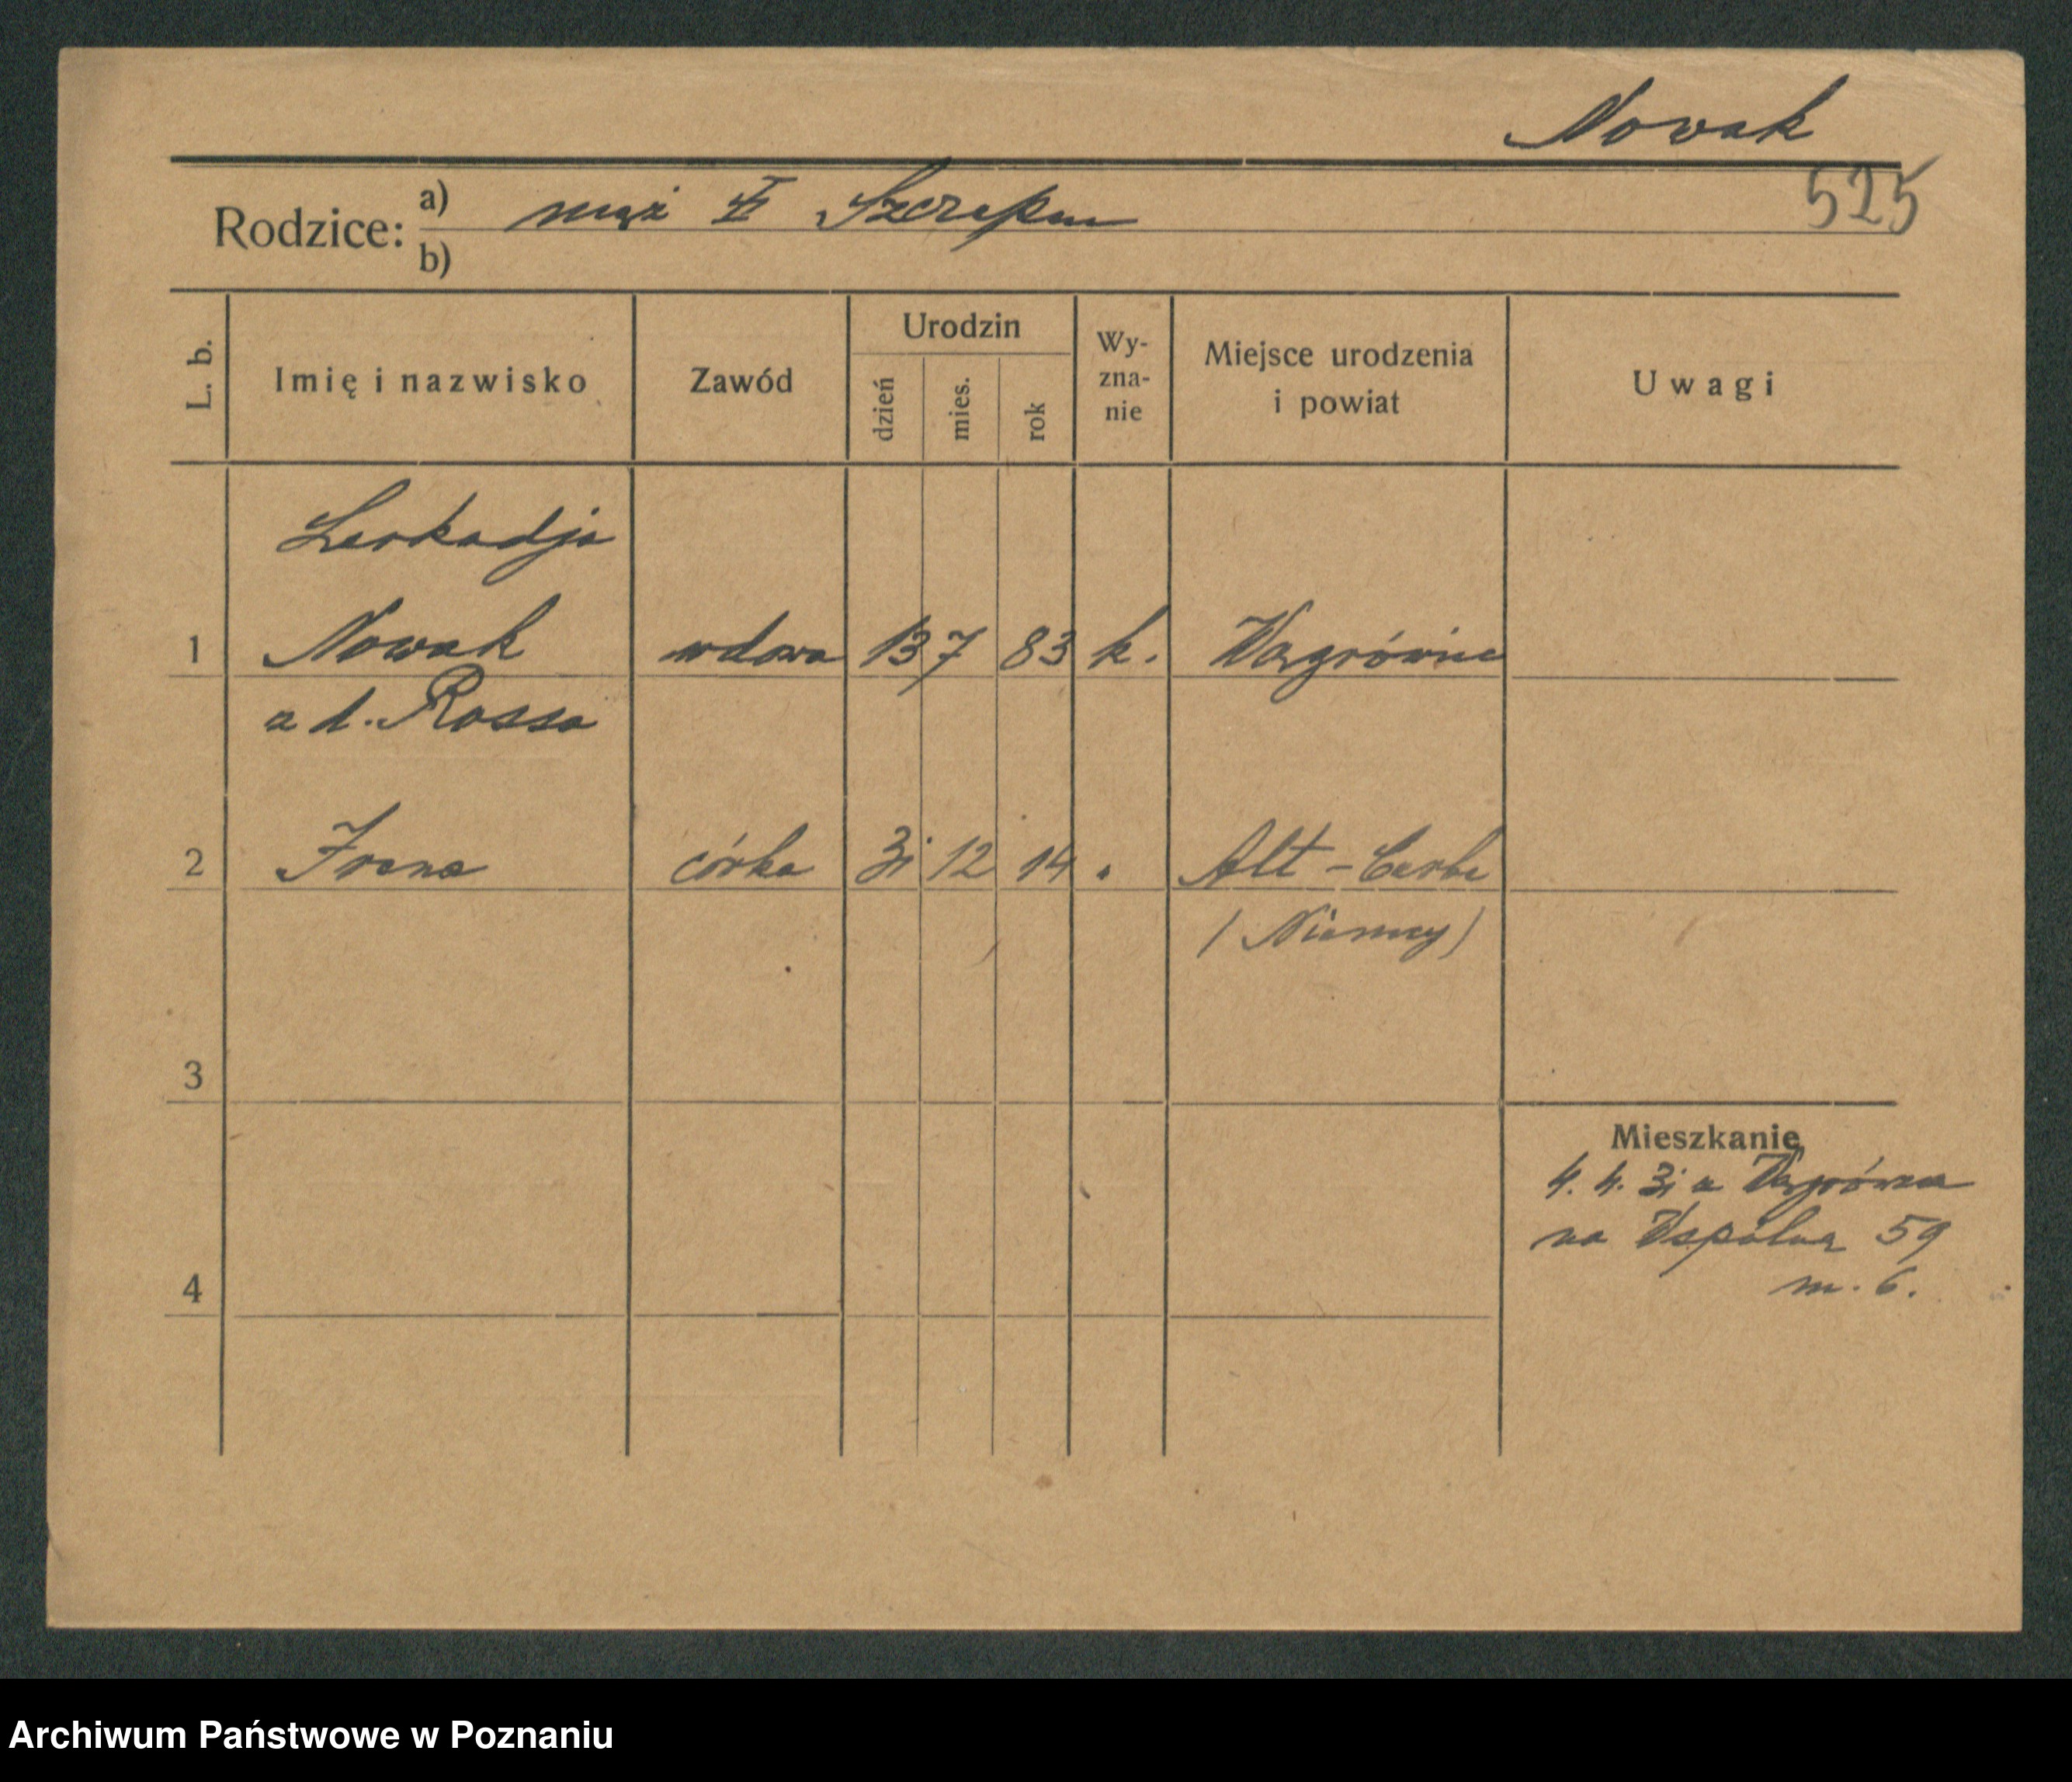 Nowak
525
Rodzice: a) mąż II Szczepan
b)
L. b. Imię i nazwisko Zawód Urodzin dzień mies. rok Wy-zna-nie Miejsce urodzenia i powiat Uwagi
Leokadja
1 Nowak wdowa 13 7 83 k. Wągrówiec
z d. Rossa
2 Irena córka 31 12 14 Alt-
(Niemcy)
3
Mieszkanie
4. 4. 31 z Wągrówca
na Wspólna 59
m. 6.
4
Archiwum Państwowe w Poznaniu